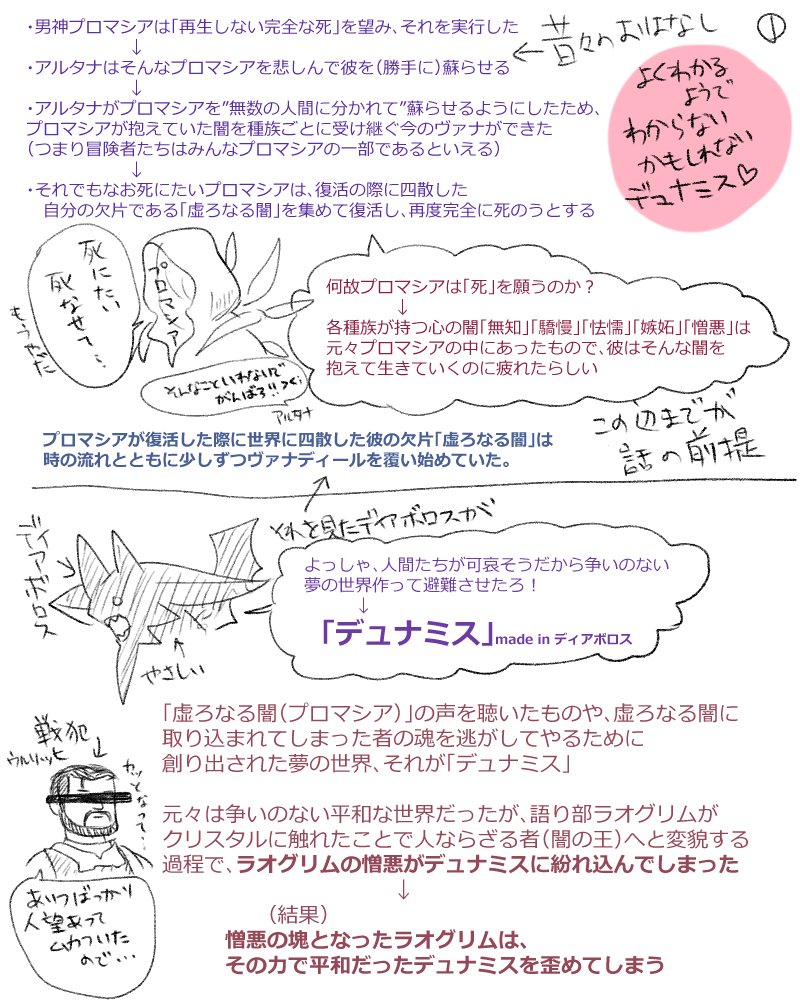 ①
昔々のおはなし
よくわかる
ようで
わからない
かもしれない
デュナミス♡
・男神プロマシアは「再生しない完全な死」を望み、それを実行した
↓
・アルタナはそんなプロマシアを悲しんで彼を（勝手に）蘇らせる
↓
・アルタナがプロマシアを”無数の人間に分かれて”蘇らせるようにしたため、
プロマシアが抱えていた闇を種族ごとに受け継ぐ今のヴァナができた
（つまり冒険者たちはみんなプロマシアの一部であるといえる）
↓
・それでもなお死にたいプロマシアは、復活の際に四散した
自分の欠片である「虚ろなる闇」を集めて復活し、再度完全に死のうとする
死にたい
死なせて…
もうやだ
プロマシア
そんなこといわないで
がんばろ!!
アルタナ
何故プロマシアは「死」を願うのか？
↓
各種族が持つ心の闇「無知」「驕慢」「怯懦」「嫉妬」「憎悪」は
元々プロマシアの中にあったもので、彼はそんな闇を
抱えて生きていくのに疲れたらしい
この辺までが
話の前提
プロマシアが復活した際に世界に四散した彼の欠片「虚ろなる闇」は
時の流れとともに少しずつヴァナディールを覆い始めていた。
それを見たディアボロスが
ディアボロス
やさしい
よっしゃ、人間たちが可哀そうだから争いのない
夢の世界作って避難させたろ！
↓
「デュナミス」made in ディアボロス
「虚ろなる闇（プロマシア）」の声を聴いたものや、虚ろなる闇に
取り込まれてしまった者の魂を逃がしてやるために
創り出された夢の世界、それが「デュナミス」
戦犯
ウルリッヒ
カッとなって…
あいつばっかり
人望あって
ムカついた
ので…
元々は争いのない平和な世界だったが、語り部ラオグリムが
クリスタルに触れたことで人ならざる者（闇の王）へと変貌する
過程で、ラオグリムの憎悪がデュナミスに紛れ込んでしまった
↓
（結果）
憎悪の塊となったラオグリムは、
その力で平和だったデュナミスを歪めてしまう